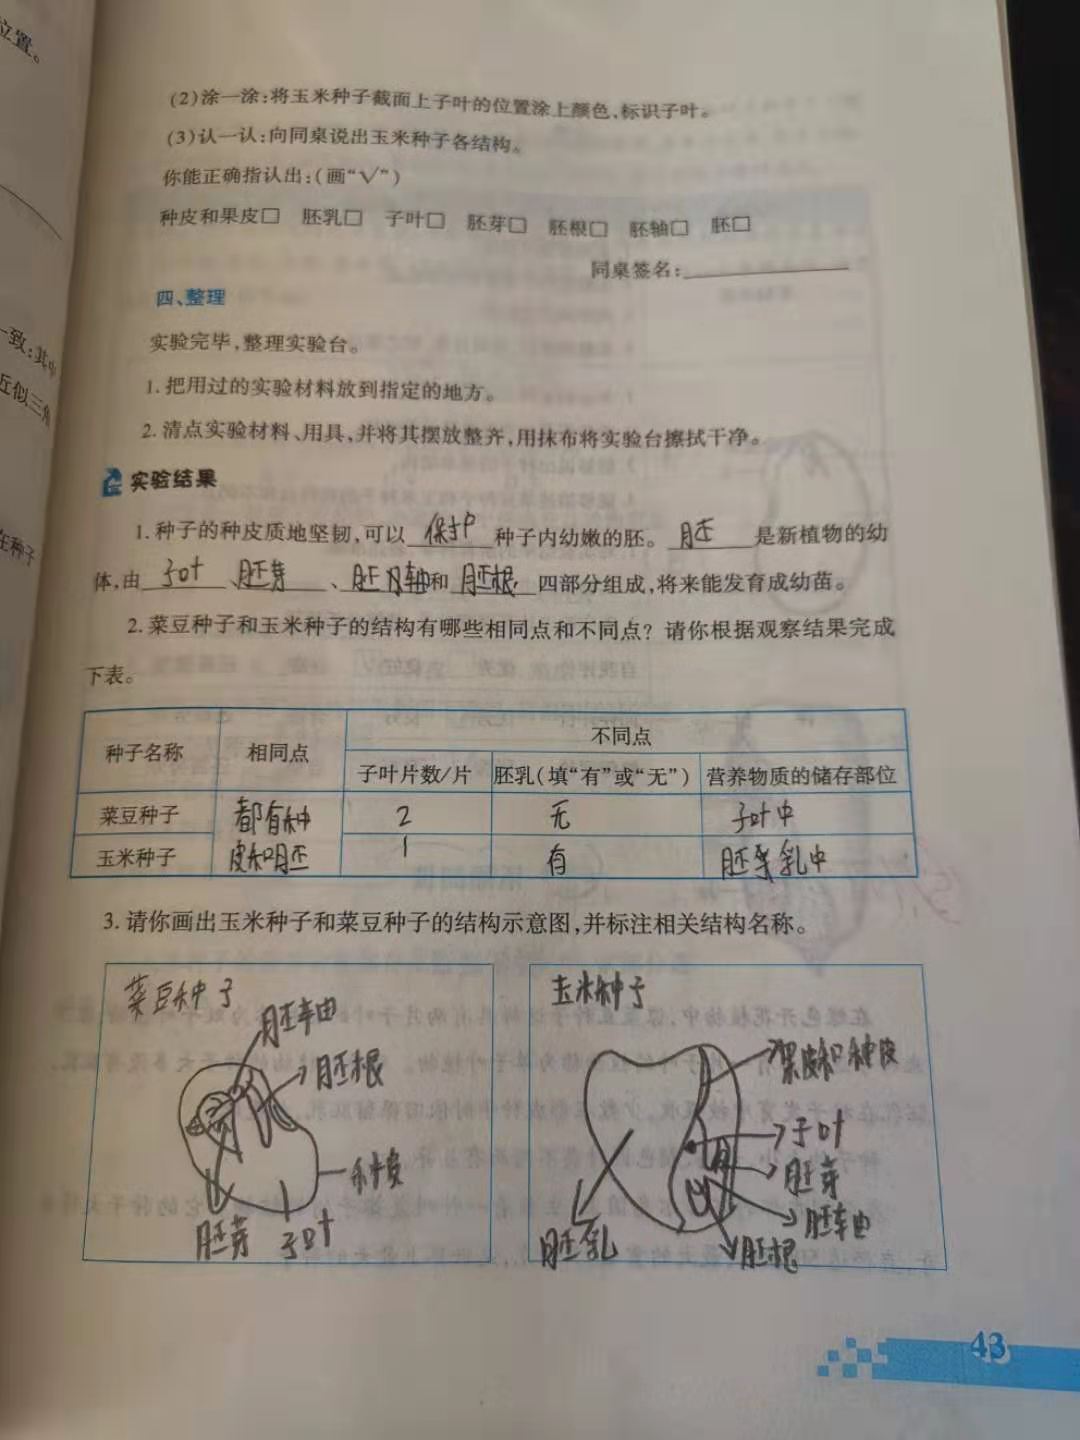 位置。
(2)涂一涂:将玉米种子截面上子叶的位置涂上颜色,标识子叶。
(3)认一认:向同桌说出玉米种子各结构。
你能正确指认出:(画“√”)
种皮和果皮□ 胚乳□ 子叶□ 胚芽□ 胚根□ 胚轴□ 胚□
同桌签名:
四、整理
一致;其中
实验完毕,整理实验台。
近似三角
1.把用过的实验材料放到指定的地方。
2.清点实验材料、用具,并将其摆放整齐,用抹布将实验台擦拭干净。
实验结果
在种子
1.种子的种皮质地坚韧,可以 保护 种子内幼嫩的胚。 胚 是新植物的幼
体,由 子叶 、胚芽 、胚轴 和 胚根 四部分组成,将来能发育成幼苗。
2.菜豆种子和玉米种子的结构有哪些相同点和不同点?请你根据观察结果完成
下表。
种子名称 相同点 不同点
子叶片数/片 胚乳(填“有”或“无”) 营养物质的储存部位
菜豆种子 都有种 2 无 子叶中
玉米种子 皮和胚 1 有 胚乳中
3.请你画出玉米种子和菜豆种子的结构示意图,并标注相关结构名称。
菜豆种子
胚轴
胚根
种皮
胚芽 子叶
玉米种子
果皮和种皮
子叶
胚芽
胚轴
胚乳 胚根
43